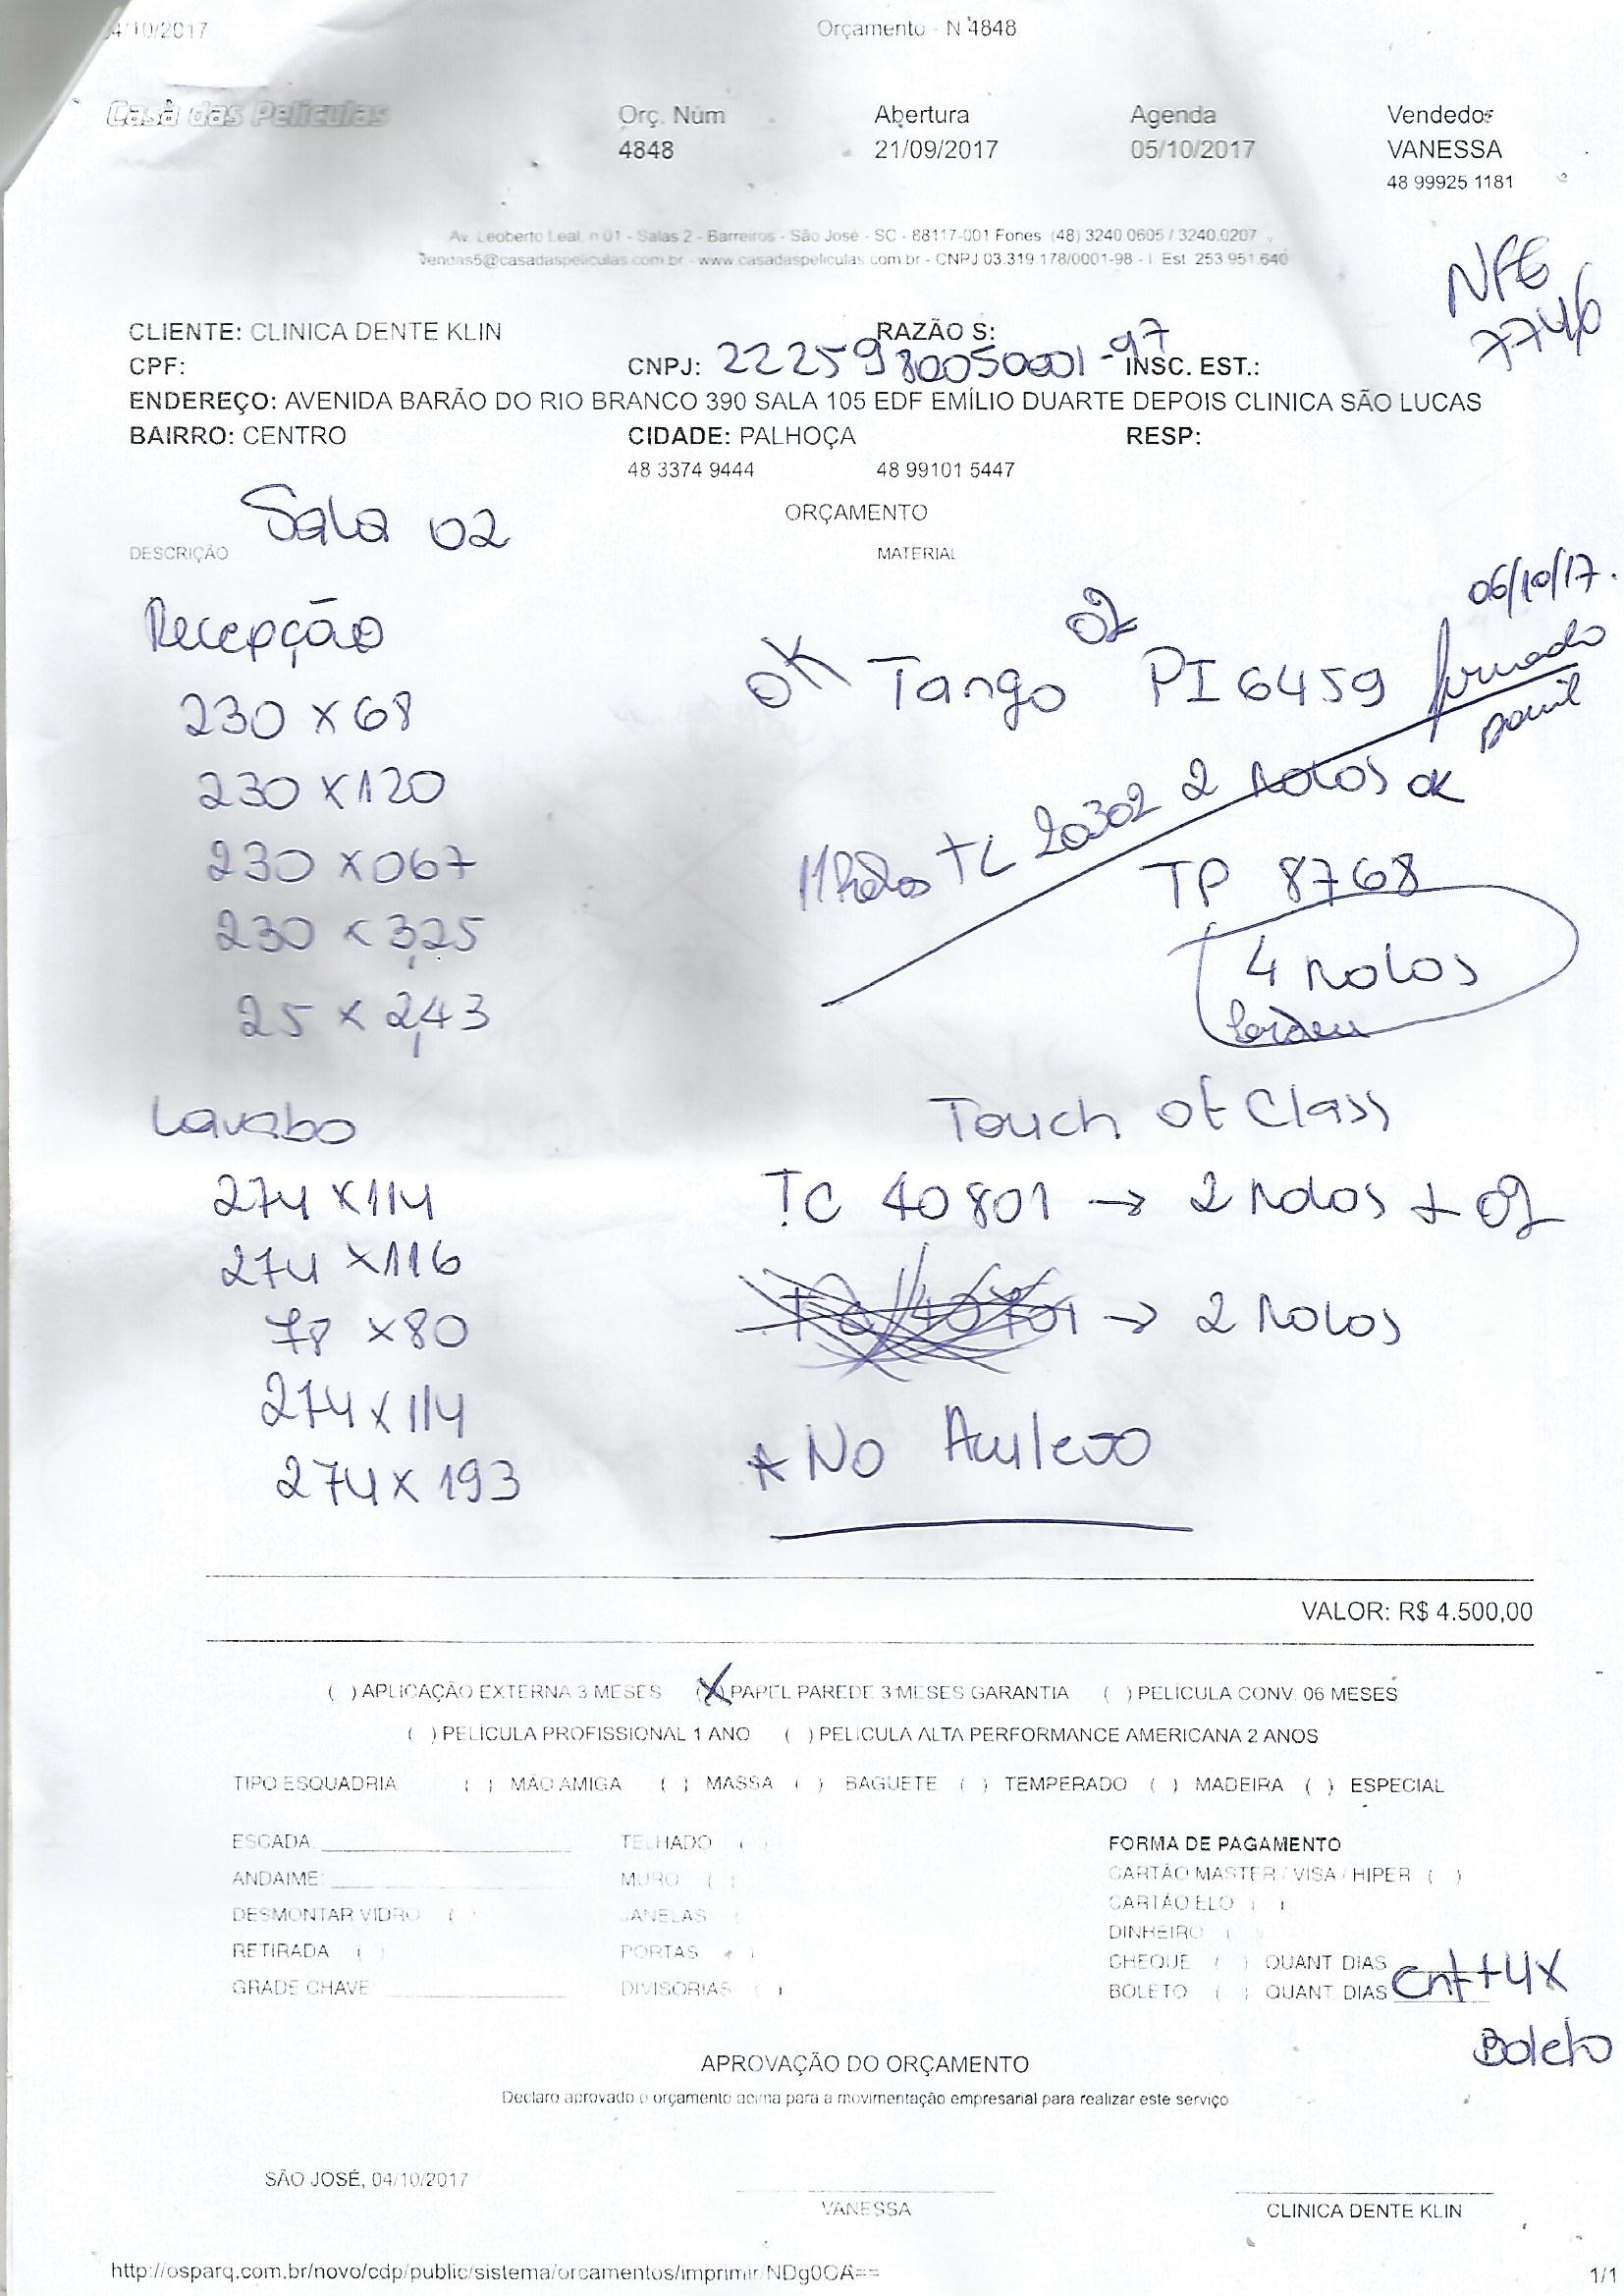 4/10/2017 Orçamento - N 4848
Casa das Películas Orç. Núm Abertura Agenda Vendedor
4848 21/09/2017 05/10/2017 VANESSA
48 99925 1181
Av. Leoberto Leal, n 01 - Salas 2 - Barreiros - São José - SC - 88117-001 Fones (48) 3240.0605 / 3240.0207
vendas5@casadaspeliculas.com.br - www.casadaspeliculas.com.br - CNPJ 03.319.178/0001-98 - I. Est. 253.951.640
NFE
7746
CLIENTE: CLINICA DENTE KLIN RAZÃO S:
CPF: CNPJ: 2225980050001-97 INSC. EST.:
ENDEREÇO: AVENIDA BARÃO DO RIO BRANCO 390 SALA 105 EDF EMÍLIO DUARTE DEPOIS CLINICA SÃO LUCAS
BAIRRO: CENTRO CIDADE: PALHOÇA RESP:
48 3374 9444 48 99101 5447
Sala 02 ORÇAMENTO
DESCRIÇÃO MATERIAL
06/10/17.
Recepção
OK Tango 02 PI 6459
230 x 68
230 x 120 2 Rolos OK
TL 20302
230 x 067 TP 8768
230 x 3,25 4 Rolos
25 x 2,43
Lavabo Touch of Class
274 x 114 TC 40801 → 2 Rolos +
274 x 116
78 x 80 → 2 Rolos
274 x 114
274 x 193 * No
VALOR: R$ 4.500,00
( ) APLICAÇÃO EXTERNA 3 MESES (X) PAPEL PAREDE 3 MESES GARANTIA ( ) PELÍCULA CONV. 06 MESES
( ) PELÍCULA PROFISSIONAL 1 ANO ( ) PELÍCULA ALTA PERFORMANCE AMERICANA 2 ANOS
TIPO ESQUADRIA ( ) MÃO AMIGA ( ) MASSA ( ) BAGUETE ( ) TEMPERADO ( ) MADEIRA ( ) ESPECIAL
ESCADA: TELHADO ( ) FORMA DE PAGAMENTO
ANDAIME: MURO ( ) CARTÃO MASTER / VISA / HIPER ( )
DESMONTAR VIDRO ( ) JANELAS CARTÃO ELO ( )
RETIRADA ( ) PORTAS ( ) DINHEIRO ( )
GRADE CHAVE DIVISORIAS ( ) CHEQUE ( ) QUANT DIAS
BOLETO ( ) QUANT DIAS Ent + 4x
Boleto
APROVAÇÃO DO ORÇAMENTO
Declaro aprovado o orçamento acima para a movimentação empresarial para realizar este serviço
SÃO JOSÉ, 04/10/2017
VANESSA CLINICA DENTE KLIN
http://osparq.com.br/novo/cdp/public/sistema/orcamentos/imprimir/NDg0OA== 1/1